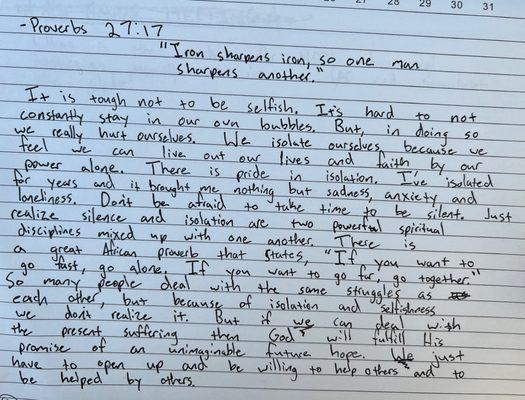 27 28 29 30 31
- Proverbs 27:17
"Iron sharpens iron, so one man
sharpens another."
It is tough not to be selfish. It's hard to not
constantly stay in our own bubbles. But, in doing so
we really hurt ourselves. We isolate ourselves, because we
feel we can live out our lives and faith by our
power alone. There is pride in isolation. I've isolated
for years and it brought me nothing but sadness, anxiety and
loneliness. Don't be afraid to take time to be silent. Just
realize silence and isolation are two powerful spiritual
disciplines mixed up with one another. There is
a great African proverb that states, "If you want to
go fast, go alone. If you want to go far, go together."
So many people deal with the same struggles as
each other, but because of isolation and selfishness
we don't realize it. But if we can deal with
the present suffering then God will fulfill His
promise of an unimaginable future hope. We just
have to open up and be willing to help others and to
be helped by others.